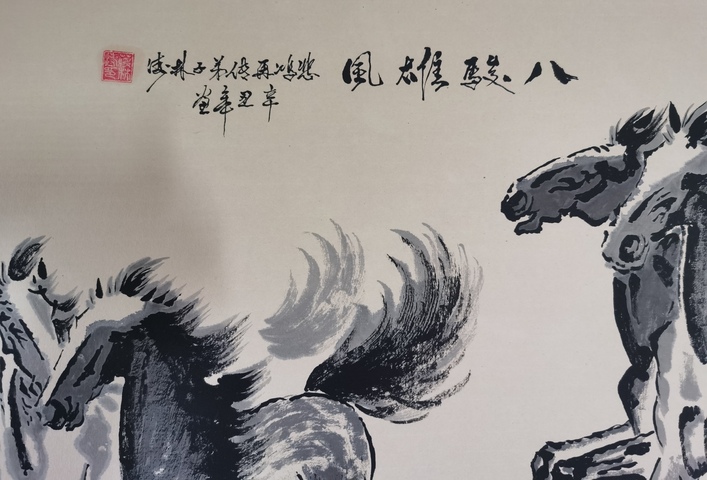 八駿雄風
悲鸿再传弟子林
辛丑年